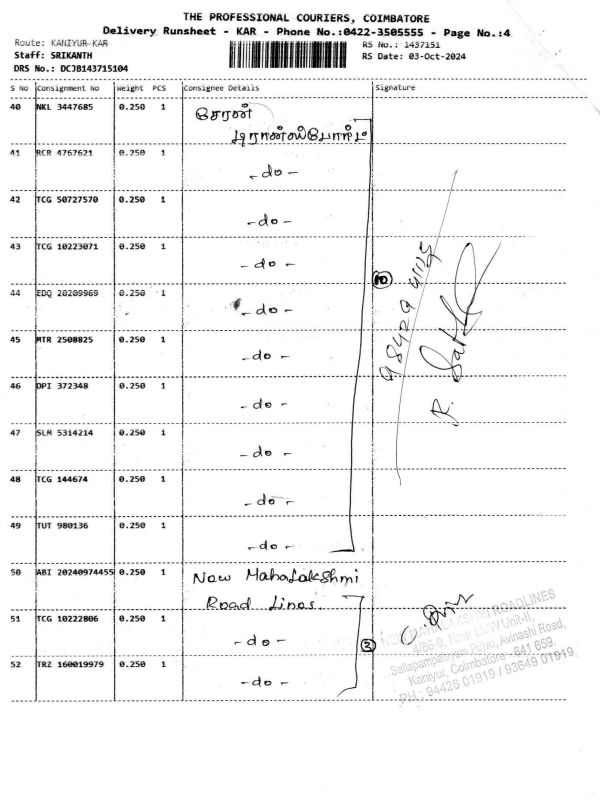 THE PROFESSIONAL COURIERS, COIMBATORE
Delivery Runsheet - KAR - Phone No.:0422-3505555 - Page No.:4
Route: KANIYUR-KAR
RS No.: 1437151
Staff: SRIKANTH
RS Date: 03-Oct-2024
DRS No.: DCJB143715104
S No Consignment No Weight PCS Consignee Details Signature
40 NKL 3447685 0.250 1 சேரன்
டிரான்ஸ்போர்ட்
41 RCR 4767621 0.250 1 - do -
42 TCG 50727570 0.250 1 - do -
43 TCG 10223071 0.250 1 - do -
10
44 EDQ 20209969 0.250 1 - do -
45 MTR 2508825 0.250 1 - do -
46 DPI 372348 0.250 1 - do -
47 SLM 5314214 0.250 1 - do -
48 TCG 144674 0.250 1 - do -
49 TUT 980136 0.250 1 - do -
50 ABI 20240974455 0.250 1 New Mahalakshmi
Road Lines.
51 TCG 10222806 0.250 1 - do -
3
52 TRZ 160019979 0.250 1 - do -
ROADLINES
4/86-9, Near LMW Unit-II,
Avinashi Road,
Kaniyur, Coimbatore - 641 659.
PH : 94426 01919 / 93649 01919